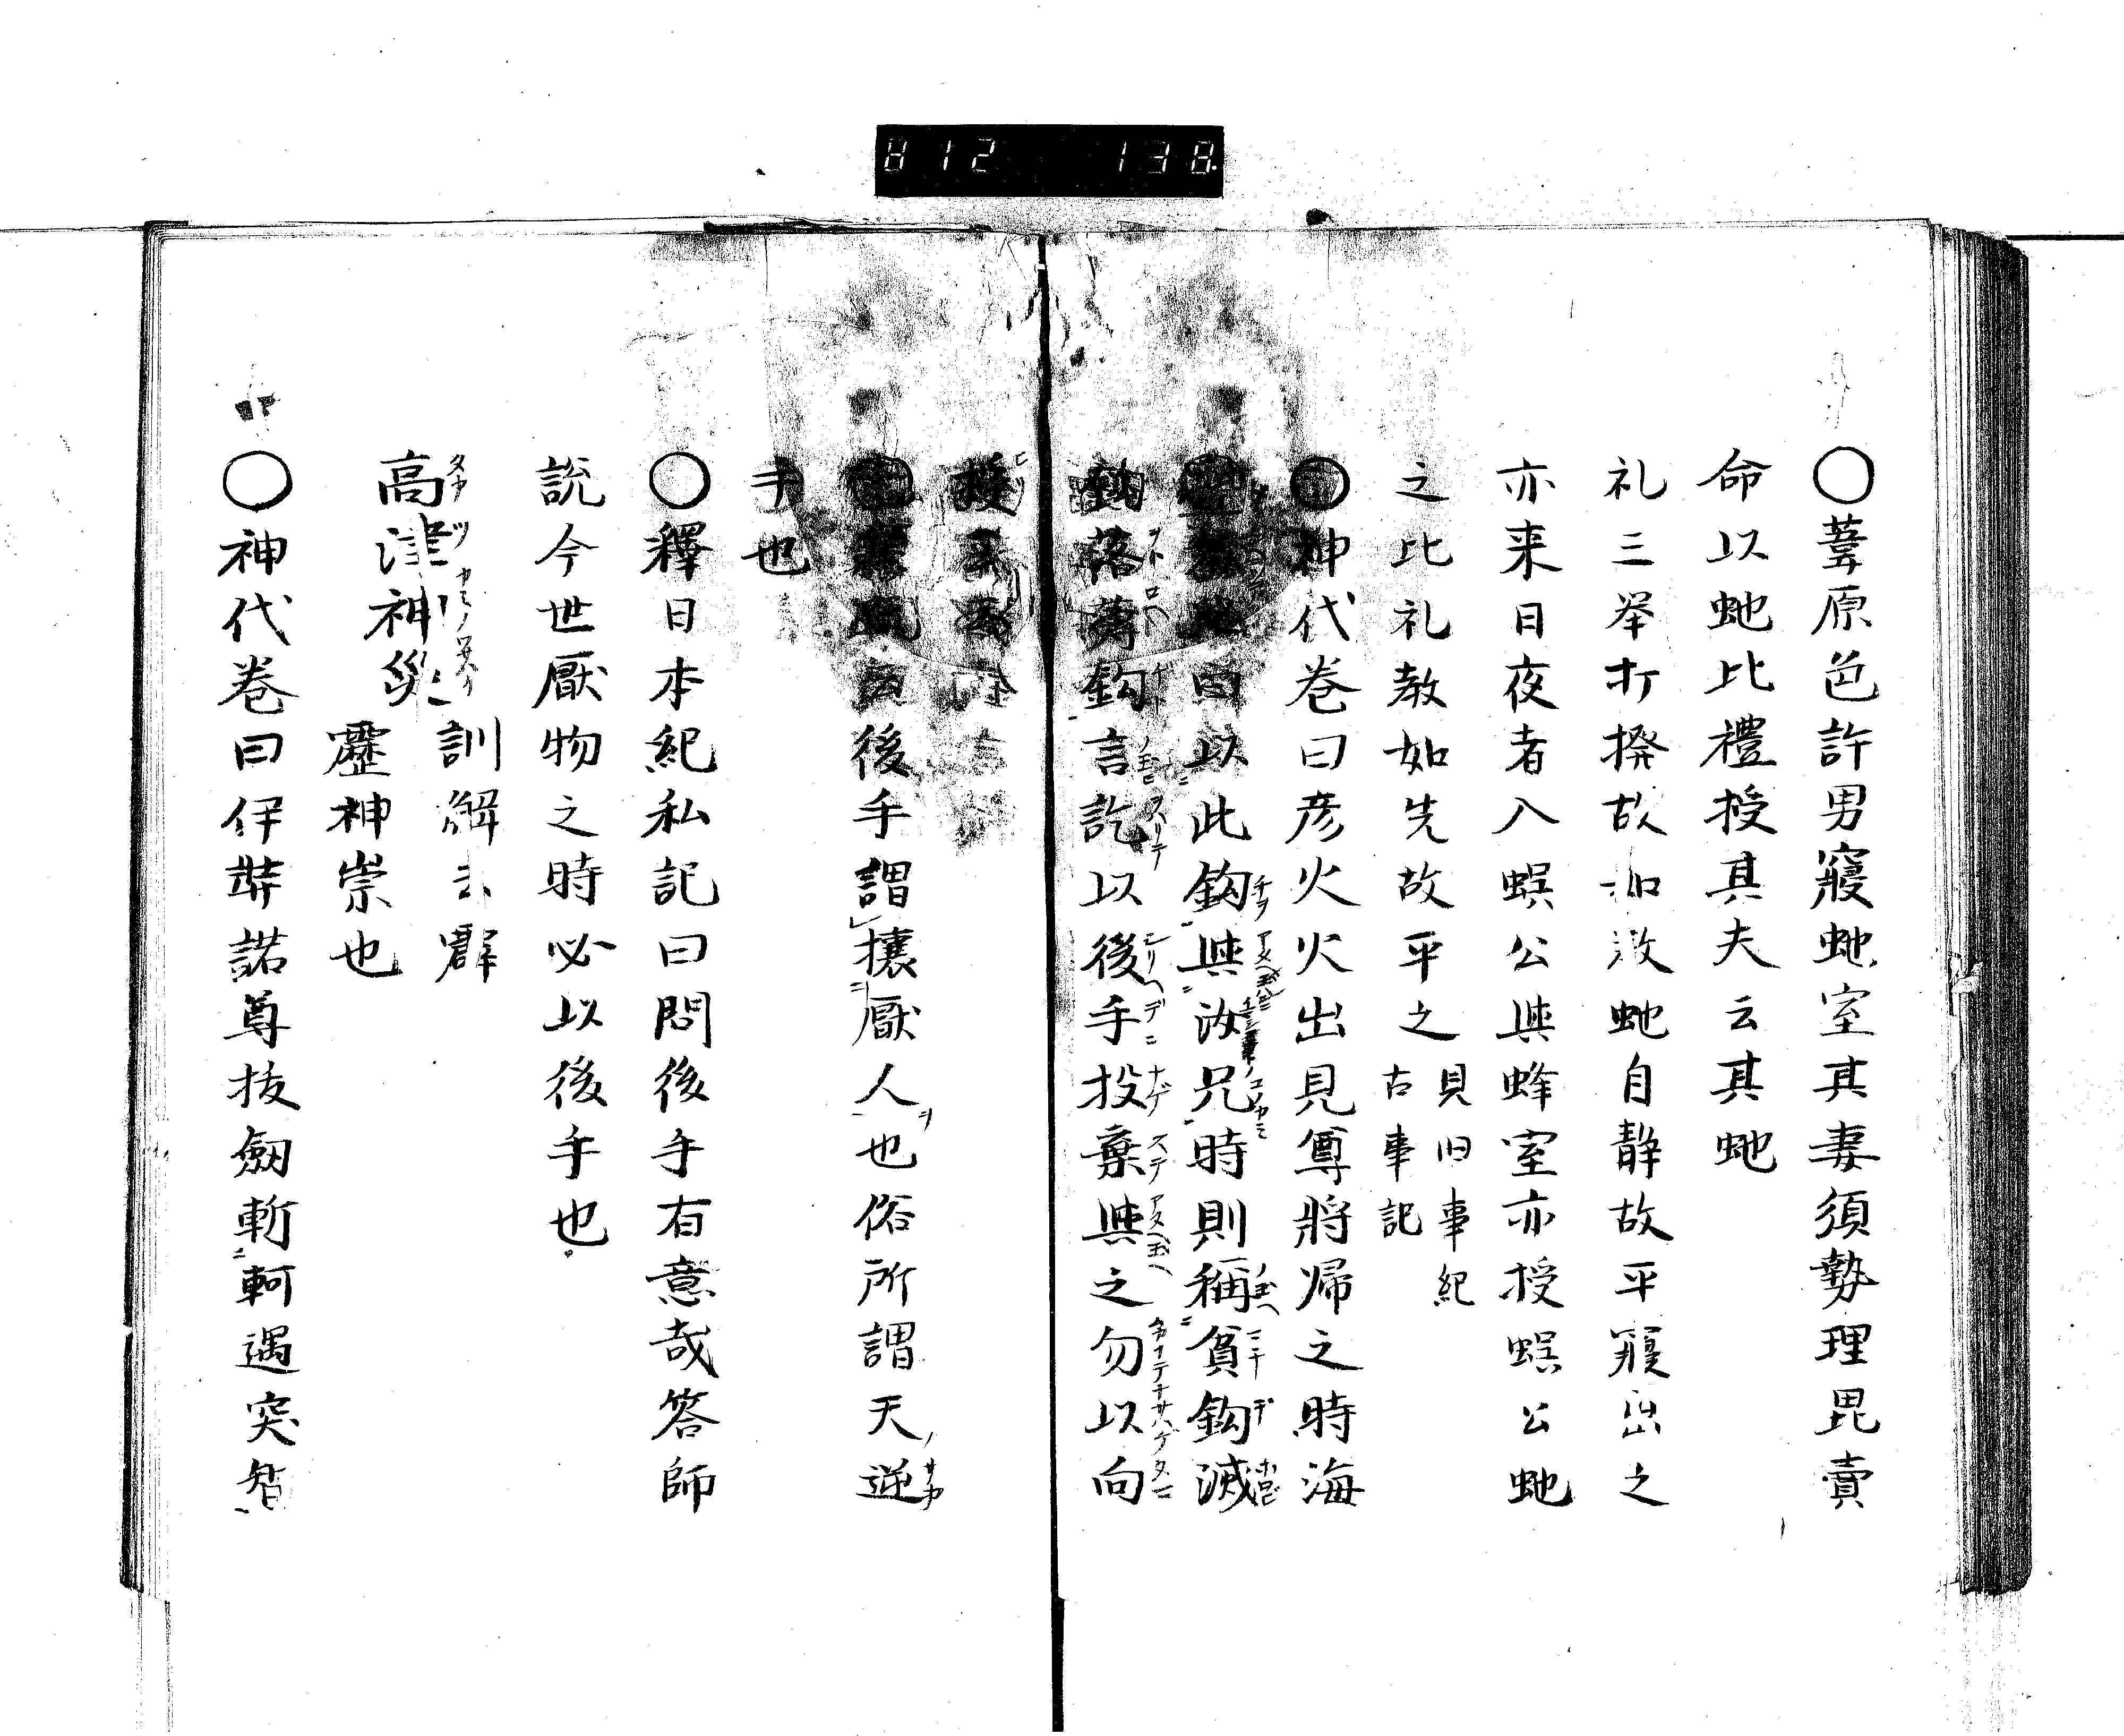 812 138
〇葦原色許男寢虵室其妻須勢理毘賣
命以虵比禮授其夫云其虵
礼三举打撥故如教虵自静故平寢出之
亦来日夜者入蜈公與蜂室亦授蜈公虵
之比礼教如先故平之 貝旧事紀
古事記
〇神代卷曰彦火火出見尊將帰之時海
曰以此鈎與汝兄時則稱貧鈎滅
鈎落薄鈎言訖以後手投棄與之勿以向
授
後手謂攘厭人也俗所謂天逆
手也
〇釋日本紀私記曰問後手有意哉答師
説今世厭物之時必以後手也
高津神災 訓解云霹
靂神崇也
〇神代卷曰伊弉諾尊抜劔斬軻遇突智